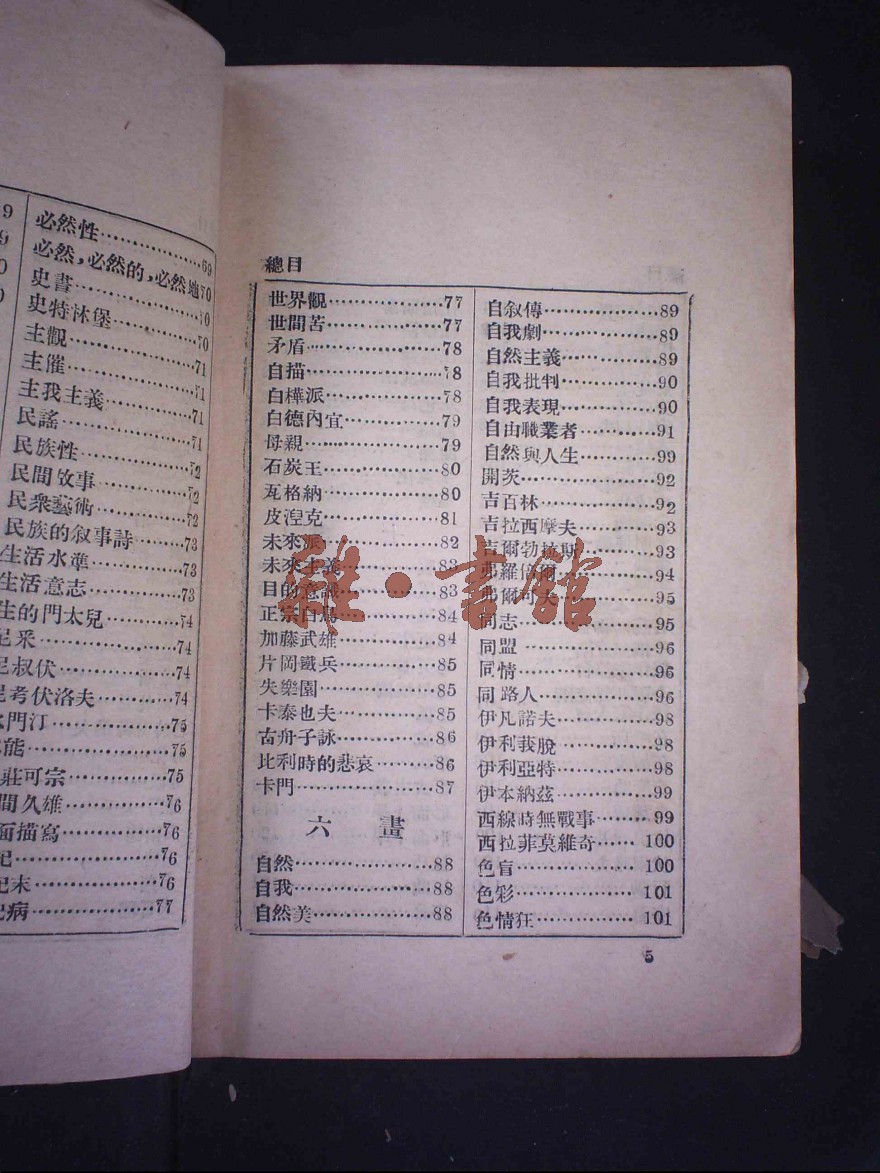 必然性…………69
必然,必然的,必然地70
史書…………70
史特林堡…………70
主觀…………71
主催…………71
主我主義…………71
民謠…………71
民族性…………72
民間故事…………72
民衆藝術…………72
民族的叙事詩……73
生活水準…………73
生活意志…………73
生的門太兒………74
尼采…………74
尼叔伏…………74
尼考伏洛夫………74
水門汀…………75
本能…………75
莊可宗…………75
間久雄…………76
面描寫…………76
紀…………76
紀末…………76
紀病…………77
總目
世界觀…………77
世間苦…………77
矛盾…………78
自描…………78
白樺派…………78
白德內宜…………79
母親…………79
石炭王…………80
瓦格納…………80
皮湼克…………81
未來派…………82
未來主義…………83
目的意識…………83
正宗白鳥…………84
加藤武雄…………84
片岡鐵兵…………85
失樂園…………85
卡泰也夫…………85
古舟子詠…………86
比利時的悲哀……86
卡門…………87
六畫
自然…………88
自我…………88
自然美…………88
自叙傳…………89
自我劇…………89
自然主義…………89
自我批判…………90
自我表現…………90
自由職業者………91
自然與人生………99
開茨…………92
吉百林…………92
吉拉西摩夫………93
吉爾勃拉斯………93
弗羅倍爾…………94
弗爾可夫…………95
同志…………95
同盟…………96
同情…………96
同路人…………96
伊凡諾夫…………98
伊利莪脫…………98
伊利亞特…………98
伊本納茲…………99
西線時無戰事……99
西拉菲莫維奇……100
色盲…………100
色彩…………101
色情狂…………101
5
雜·書館